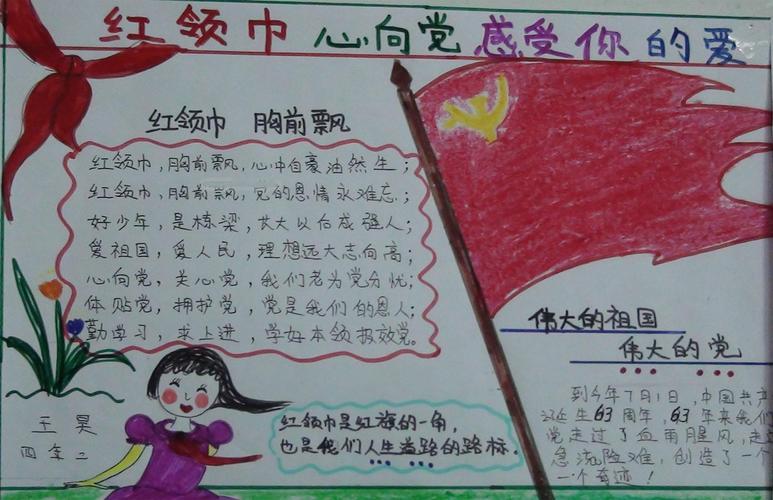 红领巾 心向党 感受你的爱
红领巾 胸前飘
红领巾,胸前飘,心中自豪油然生;
红领巾,胸前飘,党的恩情永难忘;
好少年,是栋梁,长大以后成强人;
爱祖国,爱人民,理想远大志向高;
心向党,关心党,我们老为党分忧;
体贴党,拥护党,党是我们的恩人;
勤学习,求上进,学好本领报效党。
王昊
四年二
红领巾是红旗的一角,
也是我们人生道路的路标.
伟大的祖国
伟大的党
到今年7月1日,中国共产
诞生63周年,63年来我们
党走过了血雨腥风,走
急流险难,创造了一个
一个奇迹!